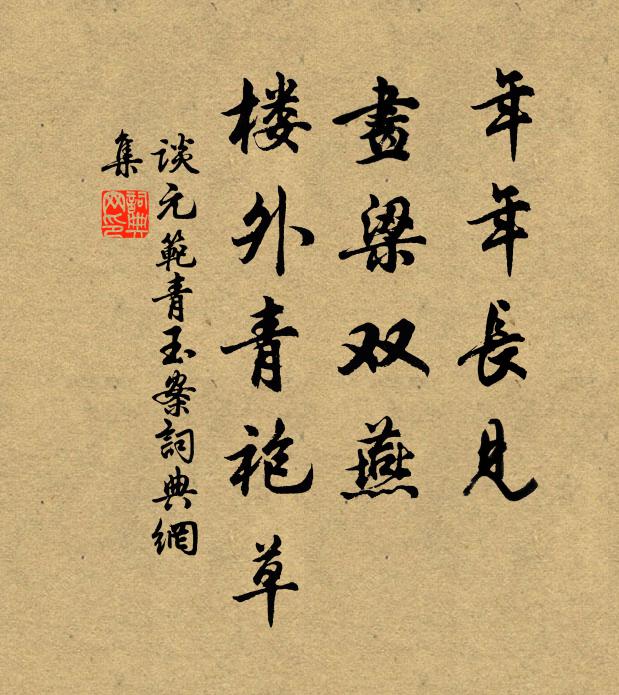 年年長見
畫梁双燕
楼外青袍草
谈元範青玉案詞典網
集
詞典网印